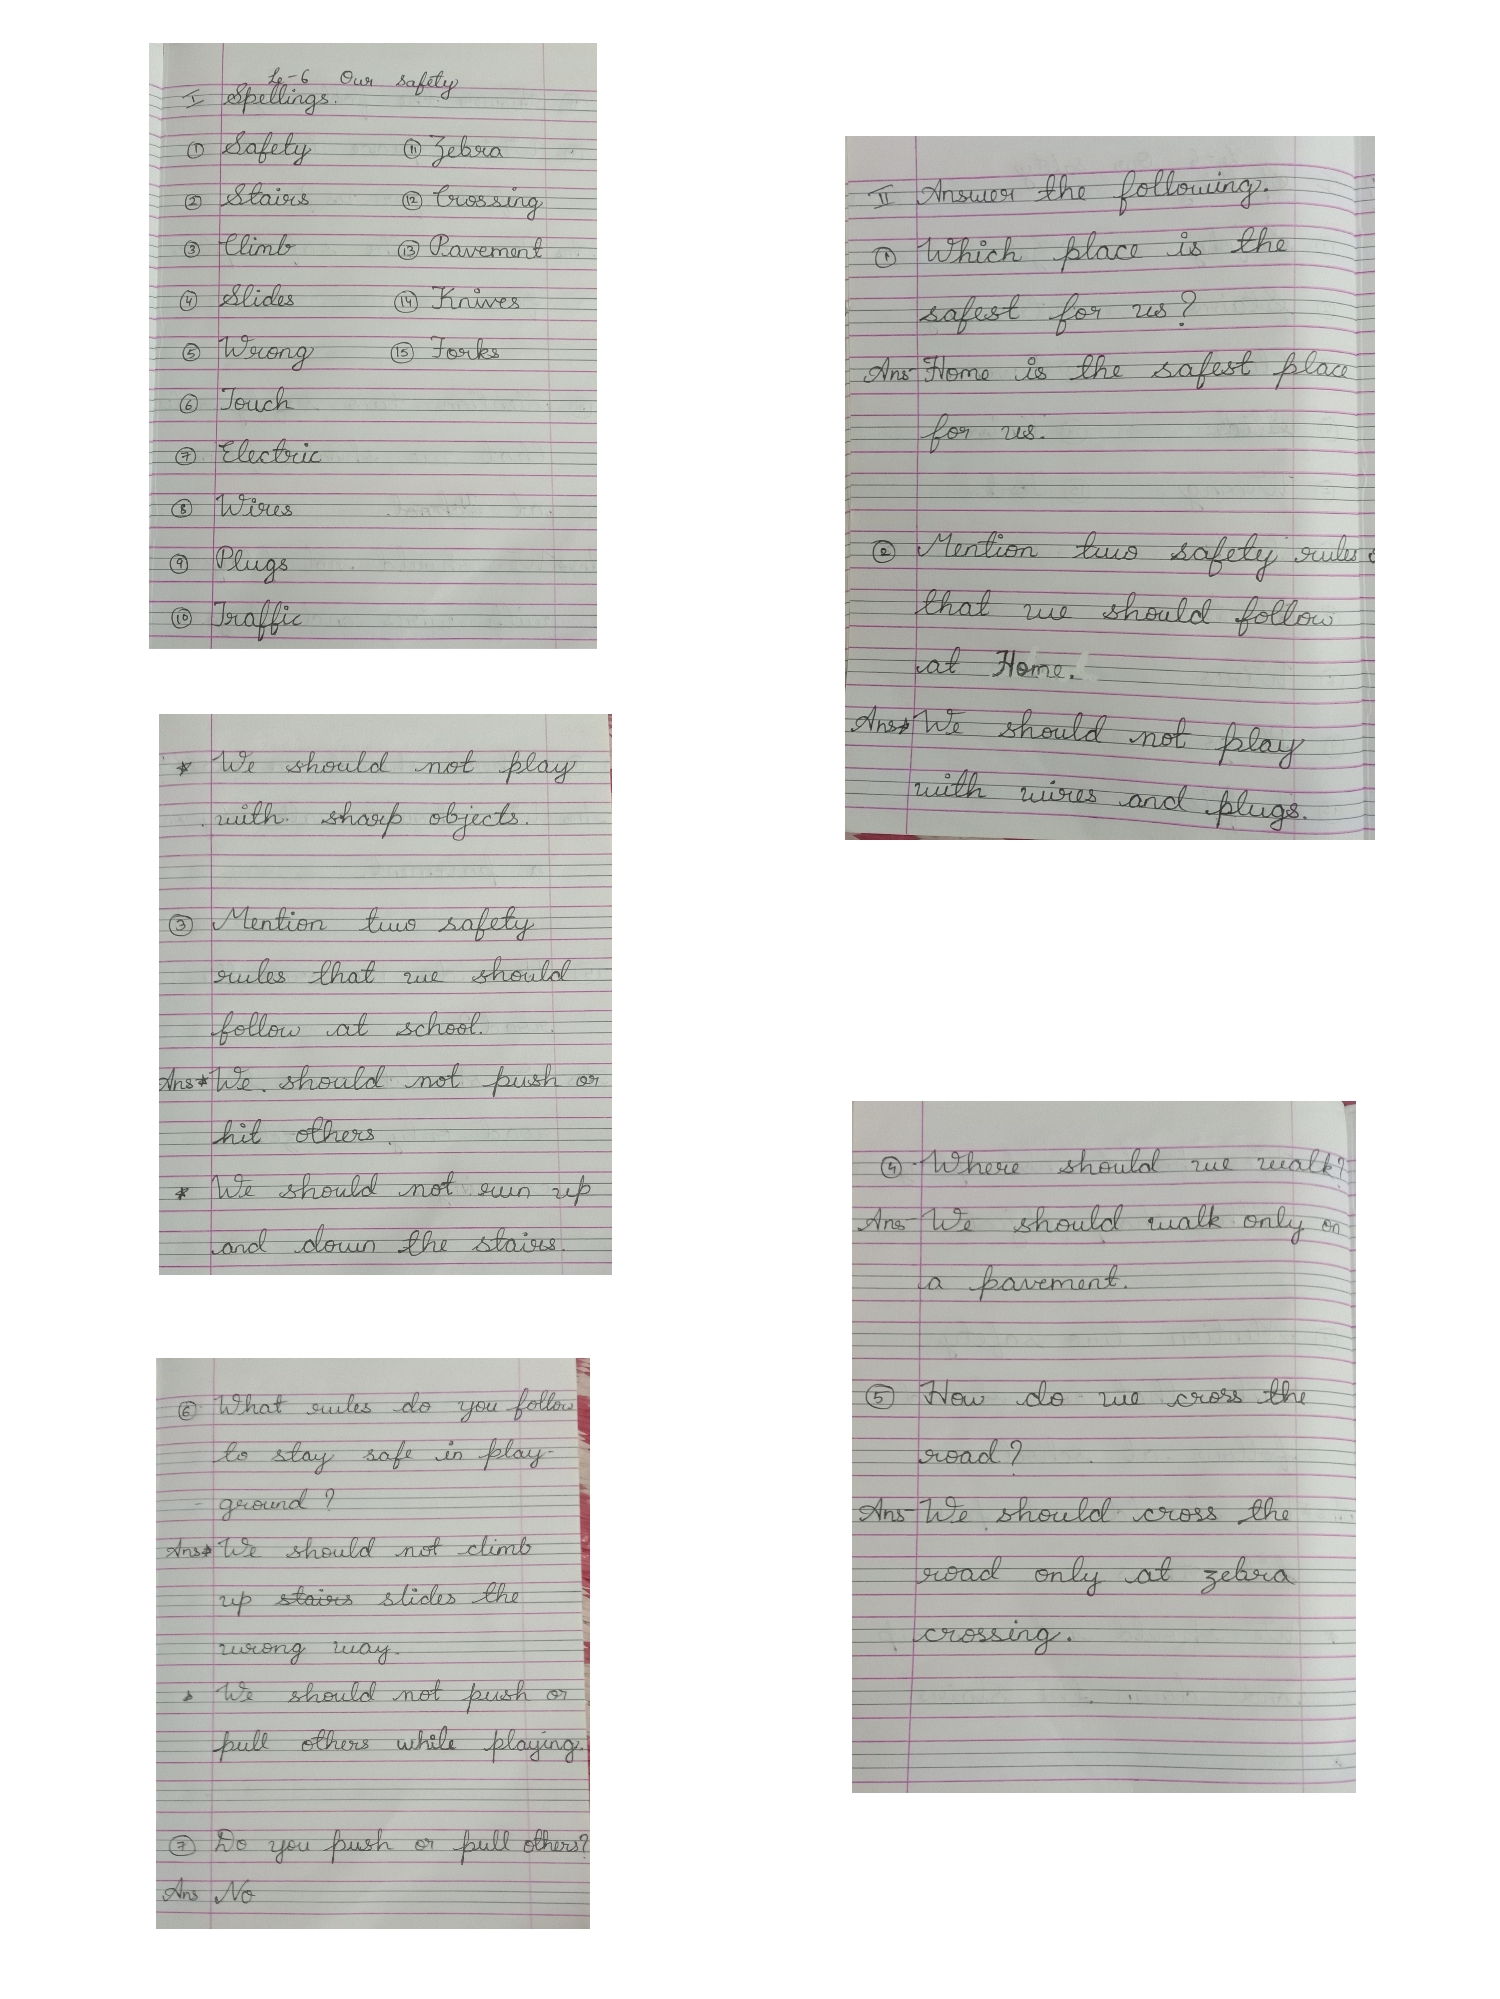 Le-6 Our safety
I Spellings.
① Safety ⑪ Zebra
② Stairs ⑫ Crossing
③ Climb ⑬ Pavement
④ Slides ⑭ Knives
⑤ Wrong ⑮ Forks
⑥ Touch
⑦ Electric
⑧ Wires
⑨ Plugs
⑩ Traffic
II Answer the following.
① Which place is the
safest for us?
Ans- Home is the safest place
for us.
② Mention two safety rules
that we should follow
at Home.
Ans* We should not play
with wires and plugs.
* We should not play
with sharp objects.
③ Mention two safety
rules that we should
follow at school.
Ans* We should not push or
hit others.
* We should not run up
and down the stairs.
④ Where should we walk?
Ans- We should walk only on
a pavement.
⑤ How do we cross the
road?
Ans- We should cross the
road only at zebra
crossing.
⑥ What rules do you follow
to stay safe in play-
- ground?
Ans* We should not climb
up stairs slides the
wrong way.
* We should not push or
pull others while playing.
⑦ Do you push or pull others?
Ans No